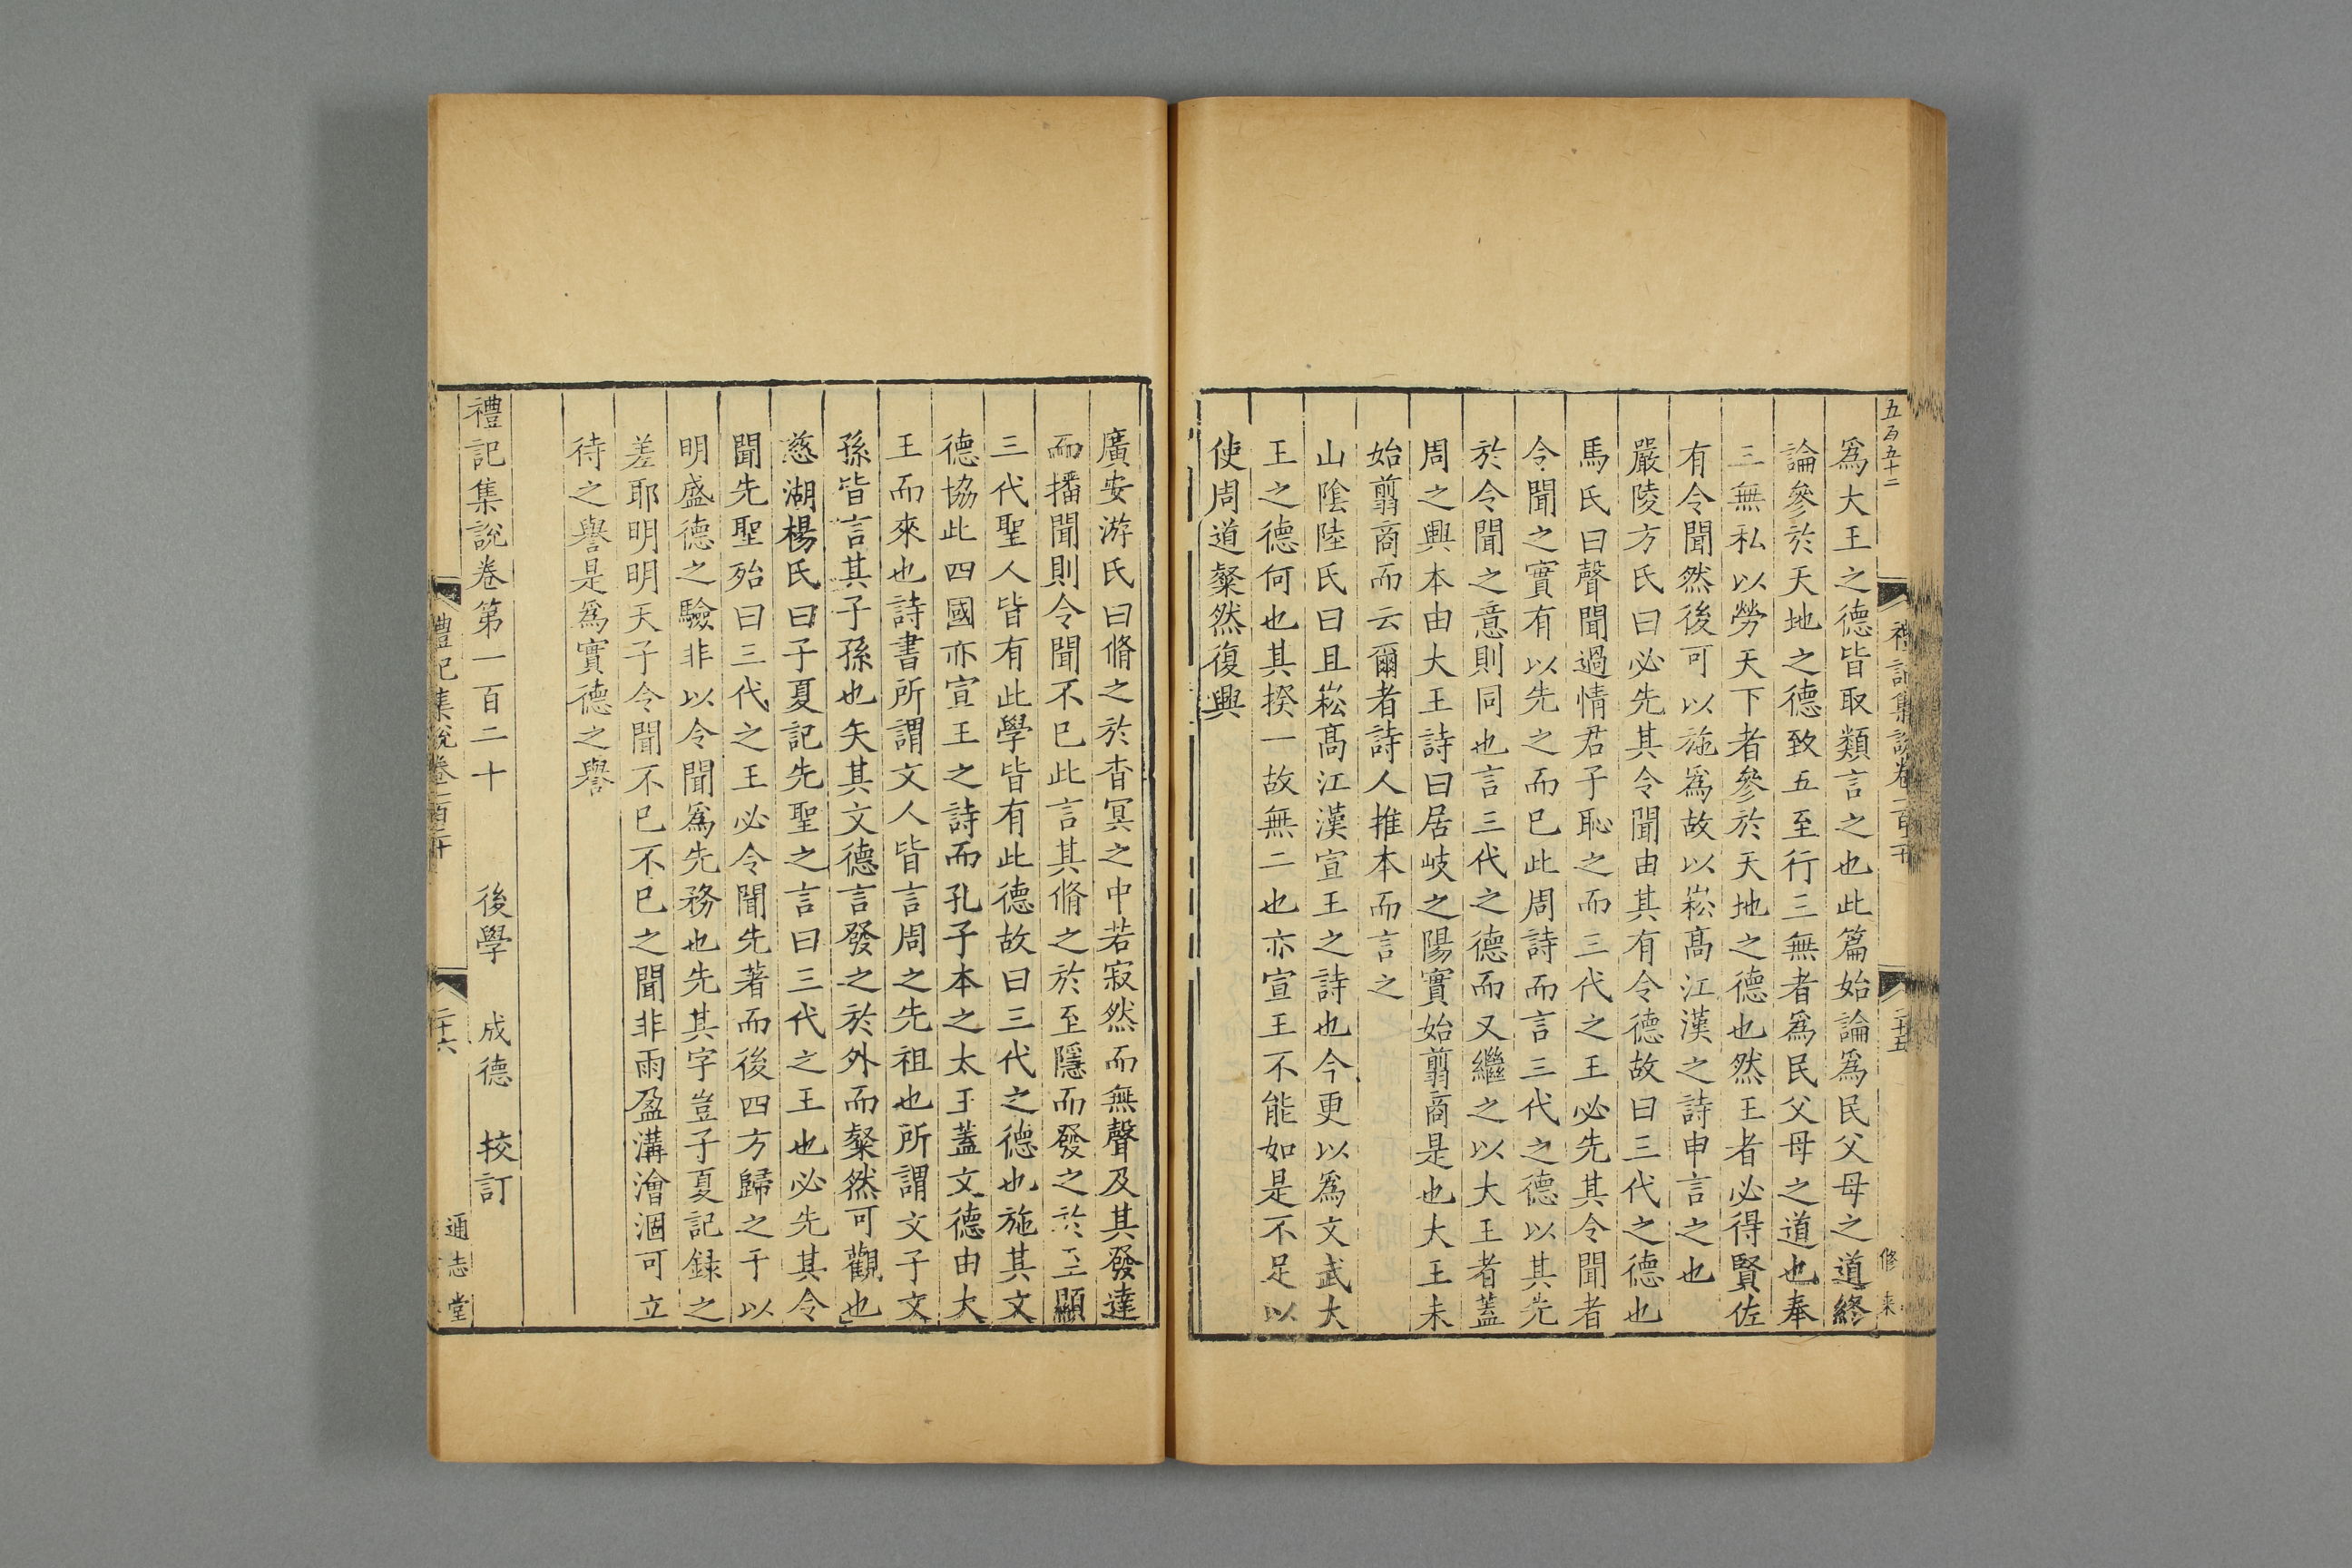 五百五十二
禮記集說卷一百二十
二十五
修
爲大王之德皆取類言之也此篇始論爲民父母之道終
論參於天地之德致五至行三無者爲民父母之道也奉
三無私以勞天下者參於天地之德也然王者必得賢佐
有令聞然後可以施爲故以崧高江漢之詩申言之也
嚴陵方氏曰必先其令聞由其有令德故曰三代之德也
馬氏曰聲聞過情君子恥之而三代之王必先其令聞者
令聞之實有以先之而已此周詩而言三代之德以其先
於令聞之意則同也言三代之德而又繼之以大王者蓋
周之興本由大王詩曰居岐之陽實始翦商是也大王未
始翦商而云爾者詩人推本而言之
山陰陸氏曰且崧高江漢宣王之詩也今更以爲文武大
王之德何也其揆一故無二也亦宣王不能如是不足以
使周道粲然復興
廣安游氏曰脩之於杳冥之中若寂然而無聲及其發達
而播聞則令聞不已此言其脩之於至隱而發之於至顯
三代聖人皆有此學皆有此德故曰三代之德也施其文
德協此四國亦宣王之詩而孔子本之太王蓋文德由大
王而來也詩書所謂文人皆言周之先祖也所謂文子文
孫皆言其子孫也矢其文德言發之於外而粲然可觀也
慈湖楊氏曰子夏記先聖之言曰三代之王也必先其令
聞先聖殆曰三代之王必令聞先著而後四方歸之于以
明盛德之驗非以令聞爲先務也先其字豈子夏記録之
差耶明明天子令聞不已不已之聞非雨盈溝澮涸可立
待之譽是爲實德之譽
禮記集說卷第一百二十　後學　成德　挍訂
禮記集說卷一百二十
二十六
通志堂